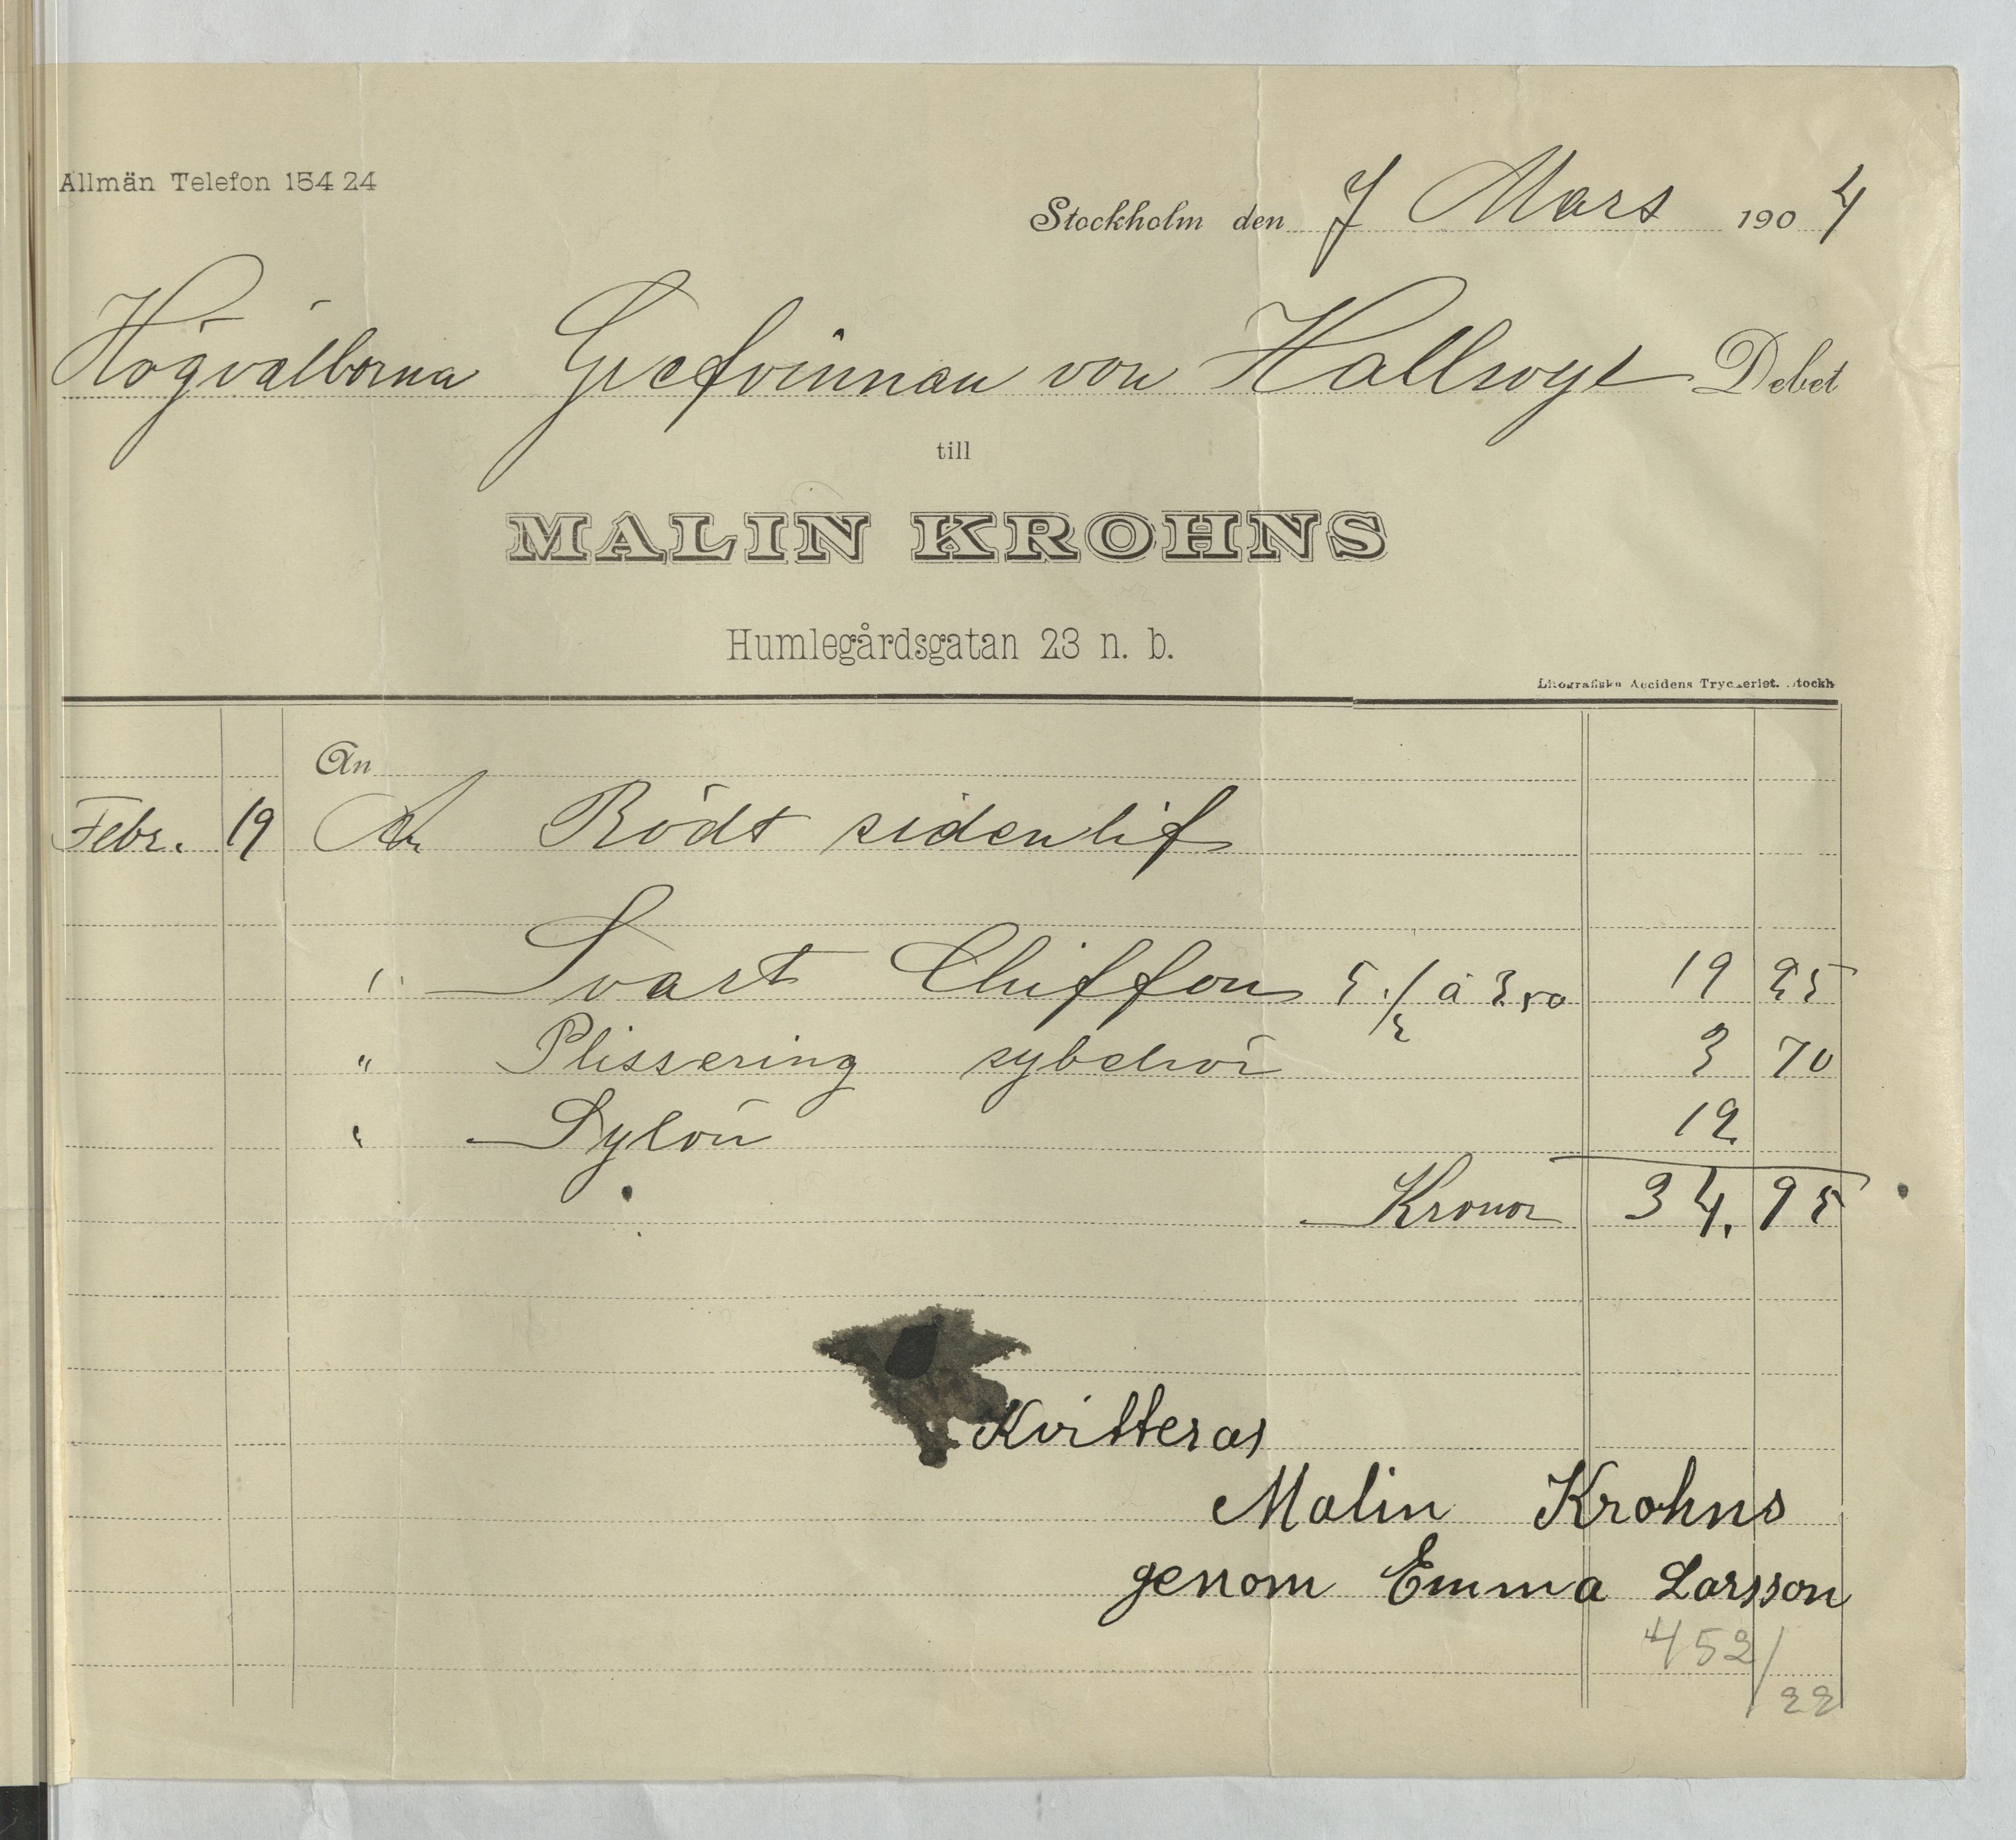 Allmän Telefon 154 24
Stockholm den 7 Mars 1904
Högvälborna Grefvinnan von Hallwyl Debet
till
MALIN KROHNS
Humlegårdsgatan 23 n. b.
Litografiska Accidens Tryckeriet. Stockh
An
Febr. 19 An Rödt sidenlif
" Svart Chiffon 5 1/2 à 3.50 19 25
" Plissering sybehör 3 70
" Sylön 12
Kronor 34.95
Kvitteras
Malin Krohns
genom Emma Larsson
452/22